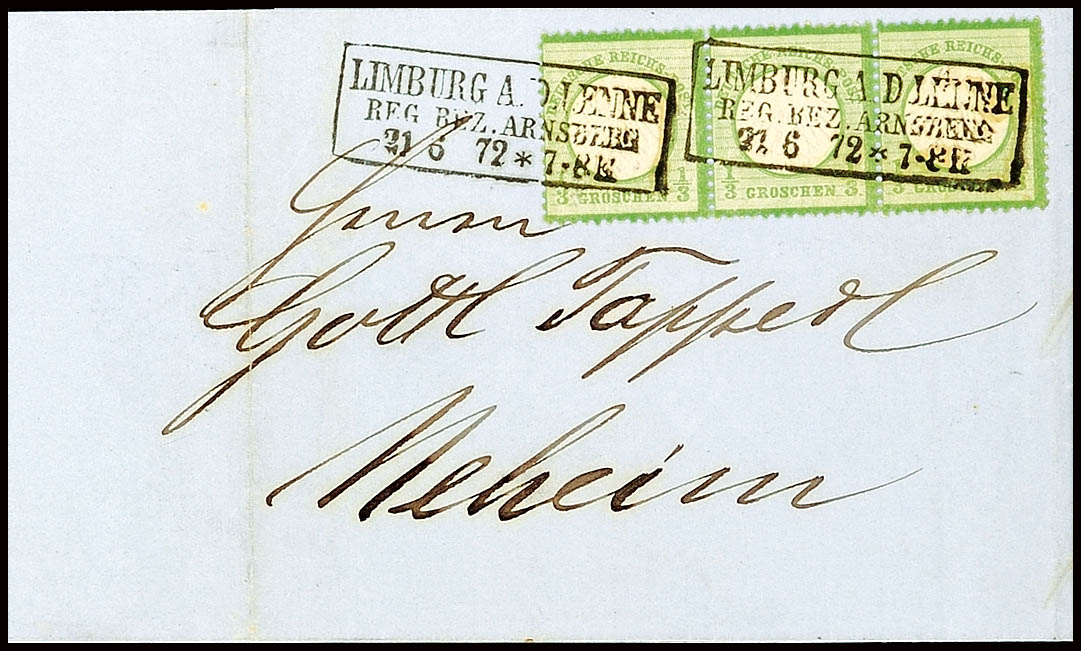 LIMBURG A. D. LENNE
REG. BEZ. ARNSBERG
21 6 72 * 7-8 N
LIMBURG A. D. LENNE
REG. BEZ. ARNSBERG
21 6 72 * 7-8 N
DEUTSCHE REICHS-POST
1/3 GROSCHEN 1/3
DEUTSCHE REICHS-POST
1/3 GROSCHEN 3
DEUTSCHE REICHS-POST
3 GROSCHEN 3
Herrn
Gottl Tapperl
Neheim